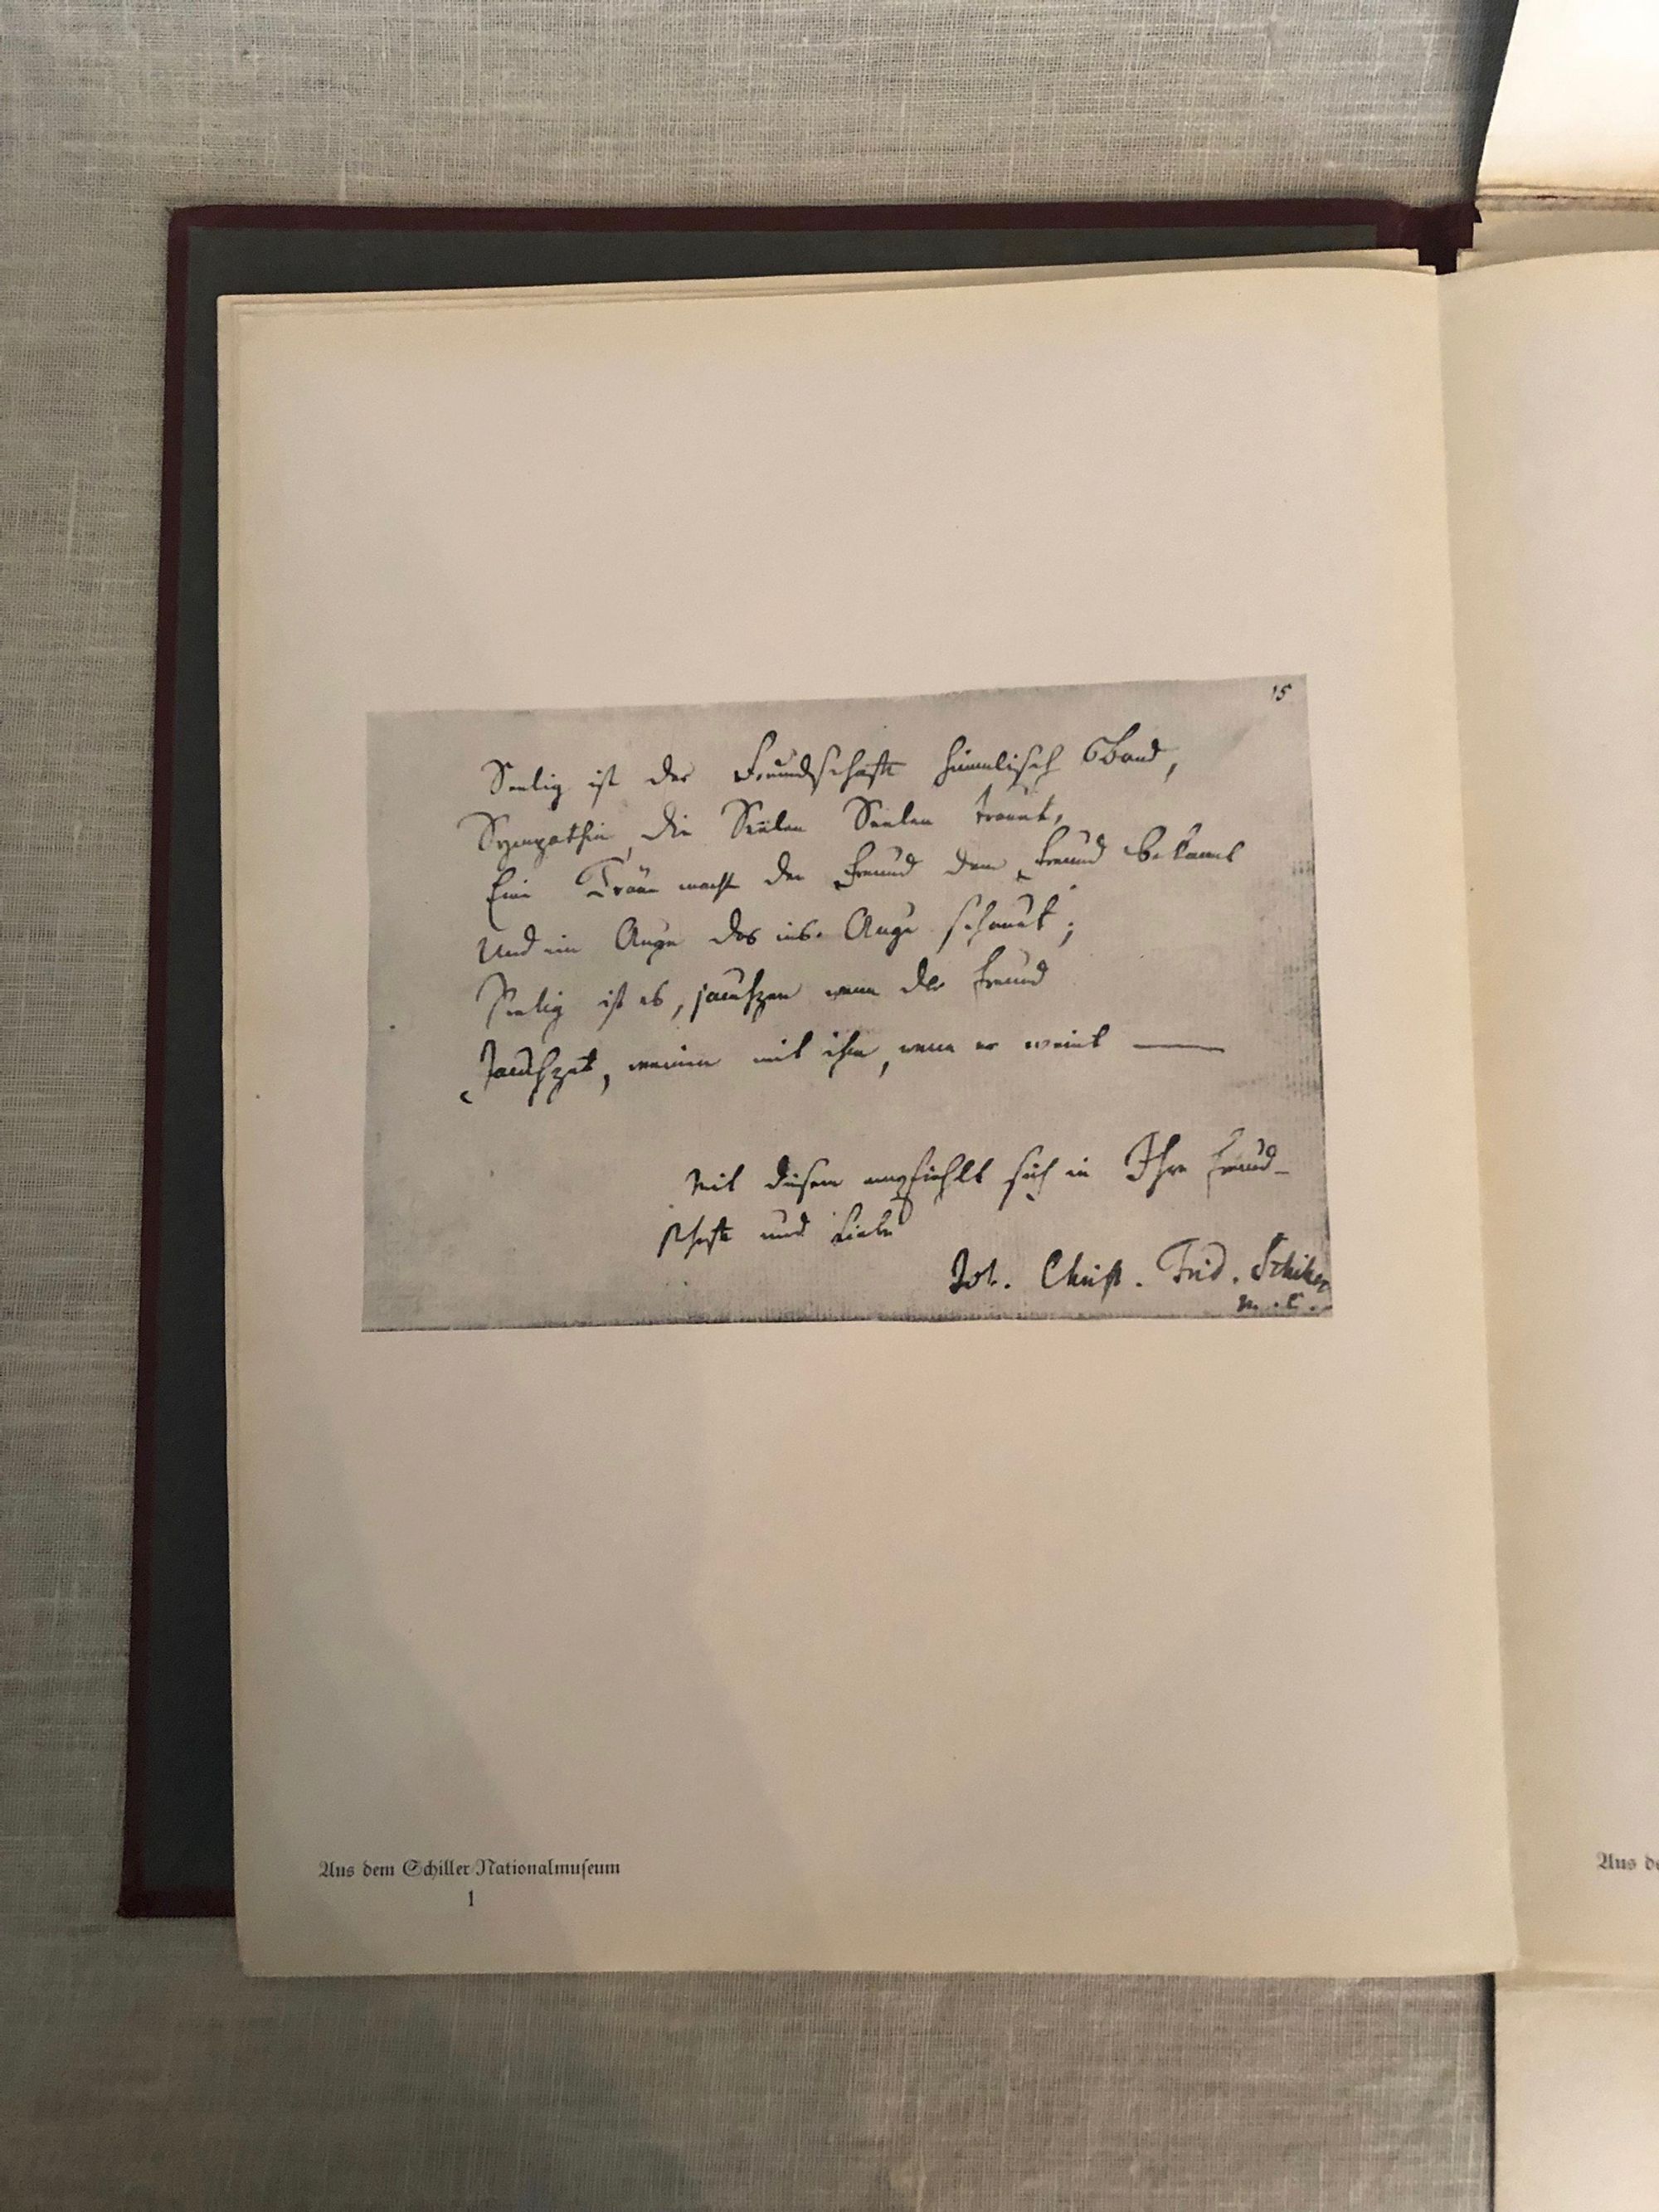 15
Seelig ist der Freundschaft himmlisch Band,
Sympathie, die Seelen Seelen trauet,
Eine Träne macht den Freund dem Freund bekannt
Und ein Auge das ins Auge schauet;
Seelig ist es, jauchzen wenn der Freund
Jauchzet, weinen mit ihm, wenn er weint —
Mit diesem empfiehlt sich in Ihre Freund-
schafft und Liebe
Joh. Christ. Frid. Schiller
M. C.
Aus dem Schiller-Nationalmuseum
1
Aus de